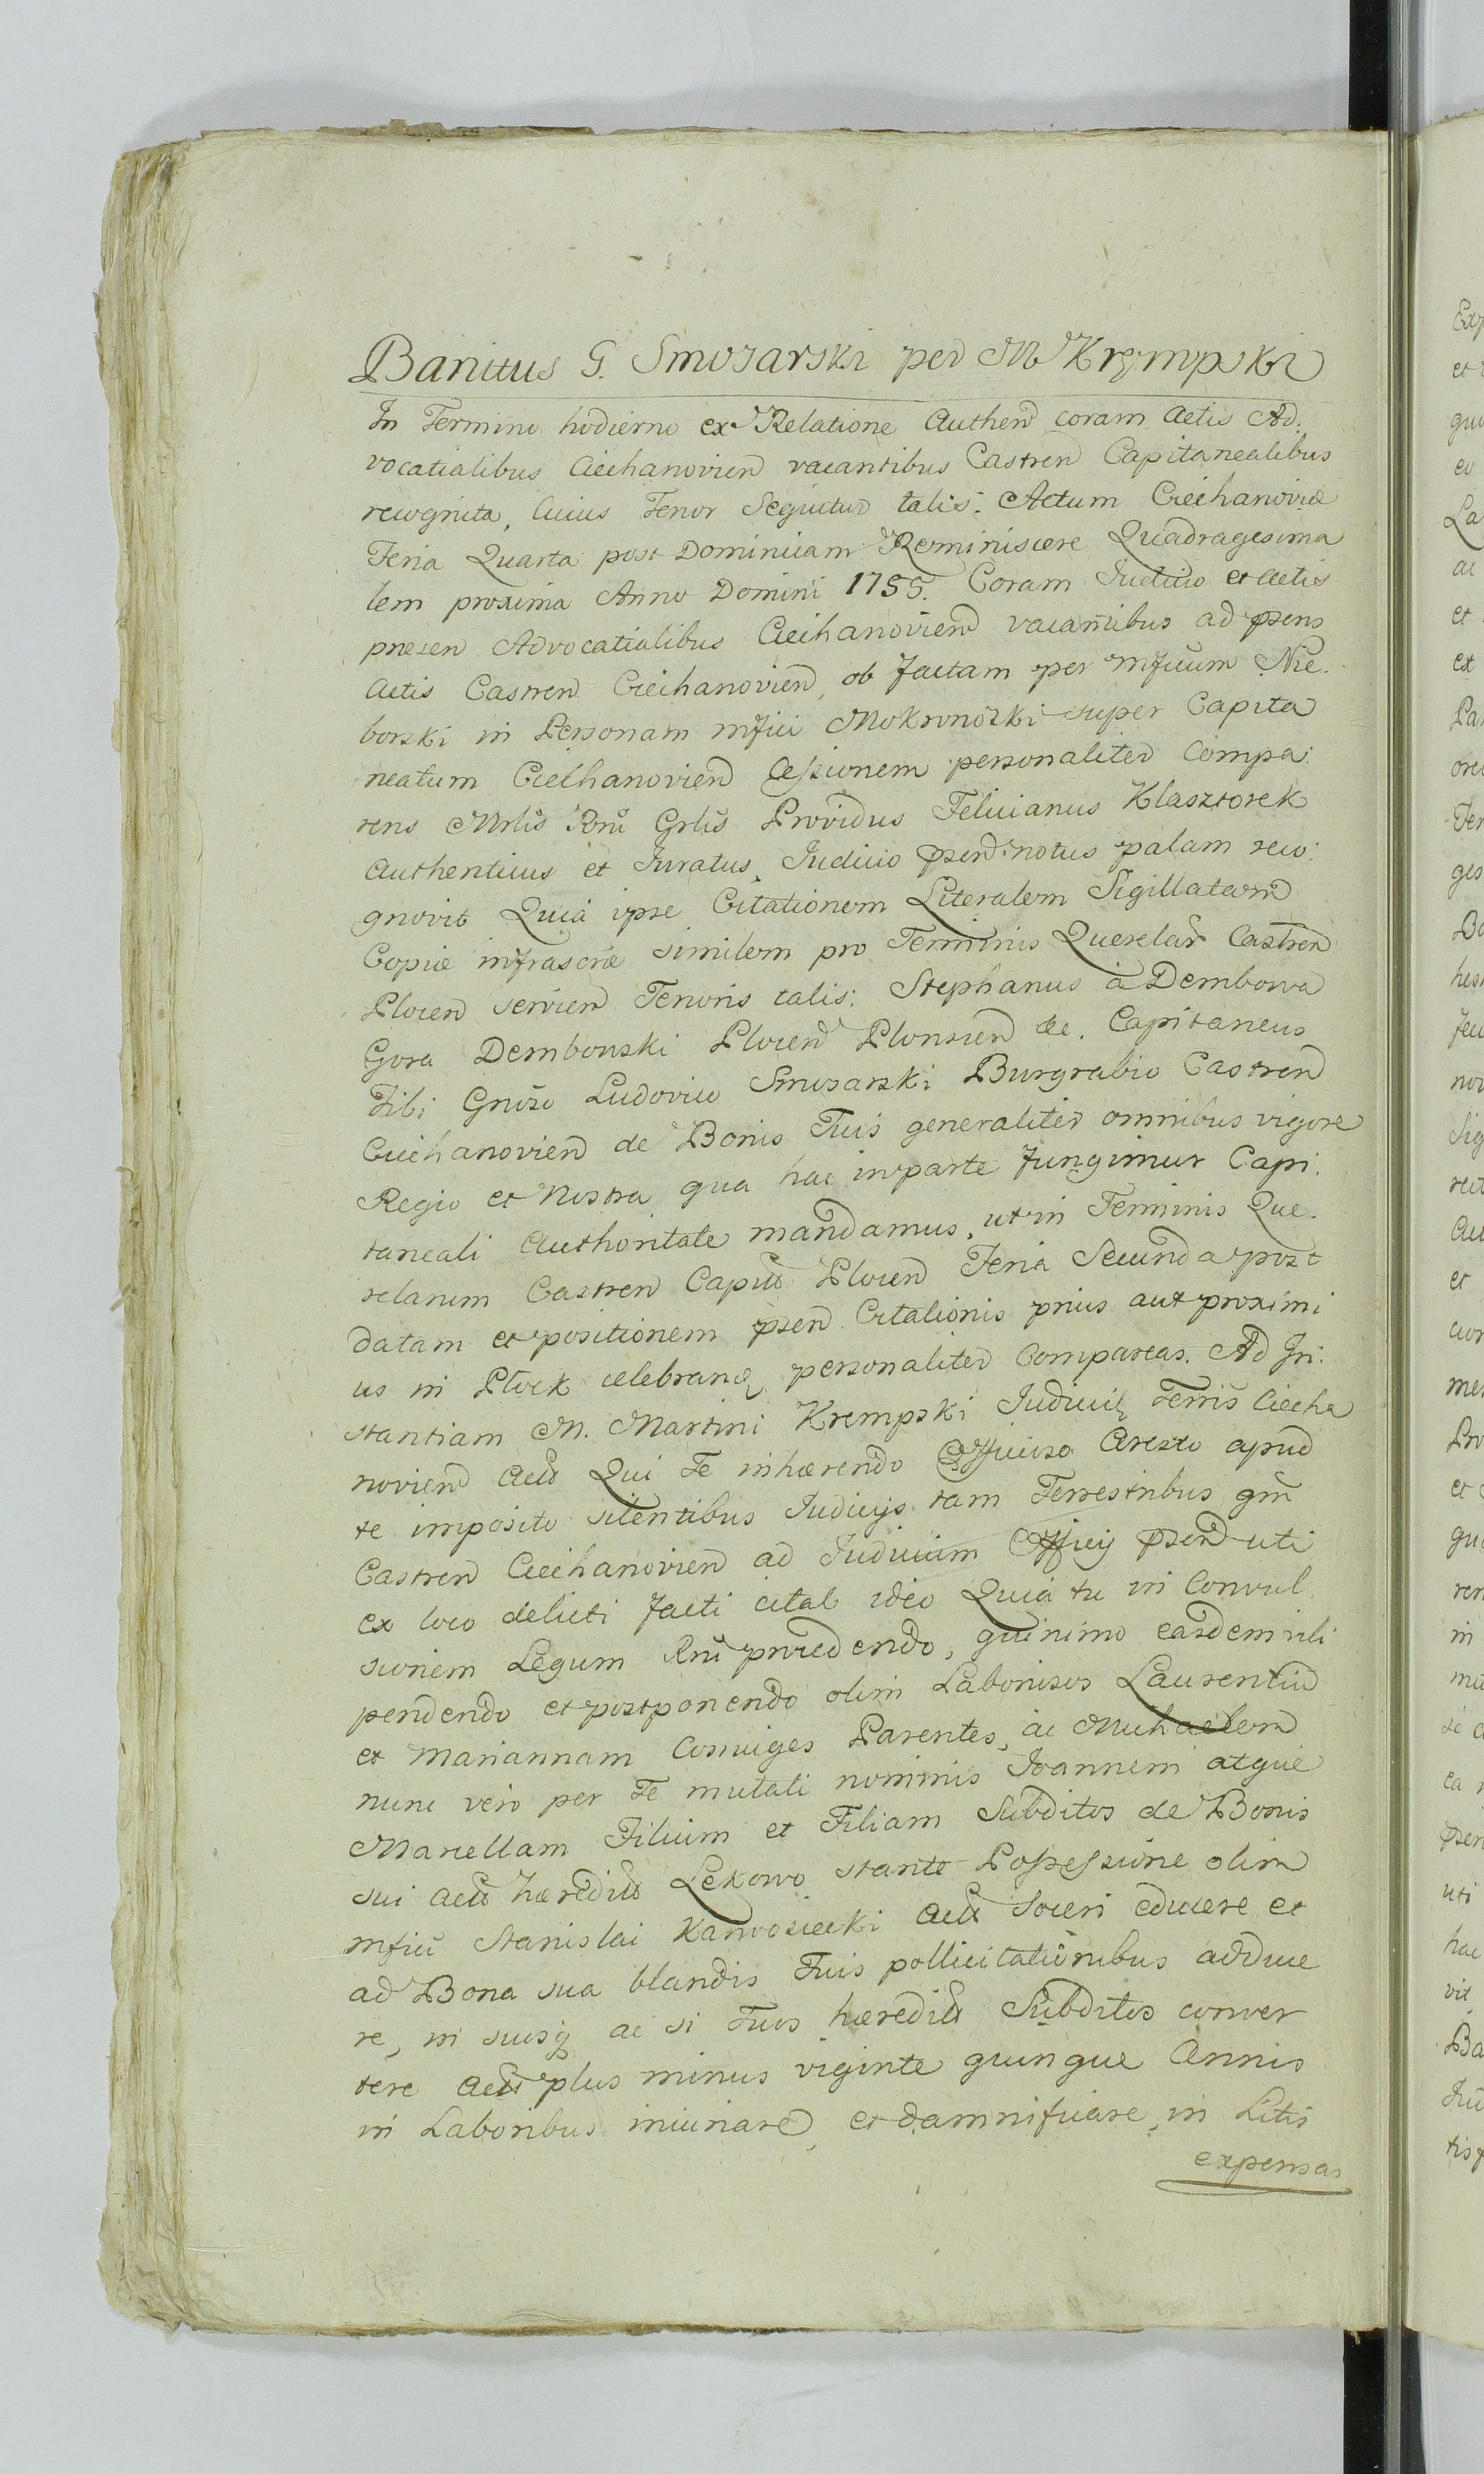 Banitus G. Smosarski per M Krempski
In Termino hodierno ex Relatione Authen coram Actis Ad:
vocatialibus Ciechanovien vacantibus Castren Capitanealibus
recognita, Cuius Tenor Sequitur talis. Actum Ciechanoviæ
Feria Quarta post Dominicam Reminiscere Quadragesima
lem proxima Anno Domini 1755. Coram Iudicio et Actis
presen Advocatialibus Ciechanovien vacantibus ad psens
Actis Castren Ciechanovien, ob factam per Mficum Nie:
borski in Personam mfici Mokronoski super Capita
neatum Ciechanovien Cessionem personaliter Compa:
rens Mrlis Rni Grlis Providus Felicianus Klasztorek
Authenticus et Iuratus, Iudicio psen notus palam reco:
gnovit Quia ipse Citationem Literalem Sigillatam
Copiæ infrascræ similem pro Terminis Querelar Castren
Plocen servien Tenoris talis: Stephanus à Dembowa
Gora Dembowski Plocen Plonscen &c. Capitaneus
Tibi Gnoso Ludovico Smosarski Burgrabio Castren
Ciechanovien de Bonis Tuis generaliter omnibus vigore
Regio et Nostra qua hac in parte fungimur Capi:
taneali Authoritate mandamus, ut in Terminis Que:
relarum Castren Capita Plocen Feria Secunda post
datam et positionem psen Citationis prius aut proximi
us in Plock celebrandę personaliter Compareas. Ad In:
stantiam M. Martini Krempski Iudicis Terris Ciecha
novien Actis Qui Te inhærendo Officioso Aresto apud
te imposito silentibus Iudicys tam Terrestribus qm
Castren Ciechanovien ad Iudicium Officij psen uti
ex loco delicti facti citat ideo Quia tu in Convul
sionem Legum Rni procedendo, quinimo easdem vili
pendendo et postponendo olim Laboriosos Laurentium
et Mariannam Coniuges Parentes, ac Michaelem
nunc vero per Te mutati nominis Ioannem atque
Marcellam Filium et Filiam Subditos de Bonis
sui Actis hæredits Lekowo stante Possessione olim
mfici Stanislai Karwosiecki Actis Soceri educere et
ad Bona sua blandis Tuis pollicitationibus adduce
re, in suosq ac si Tuos hæredits Subditos conver
tere Actis plus minus viginte quinque Annis
in Laboribus iniuriare, et damnificare, in Litis
expensas